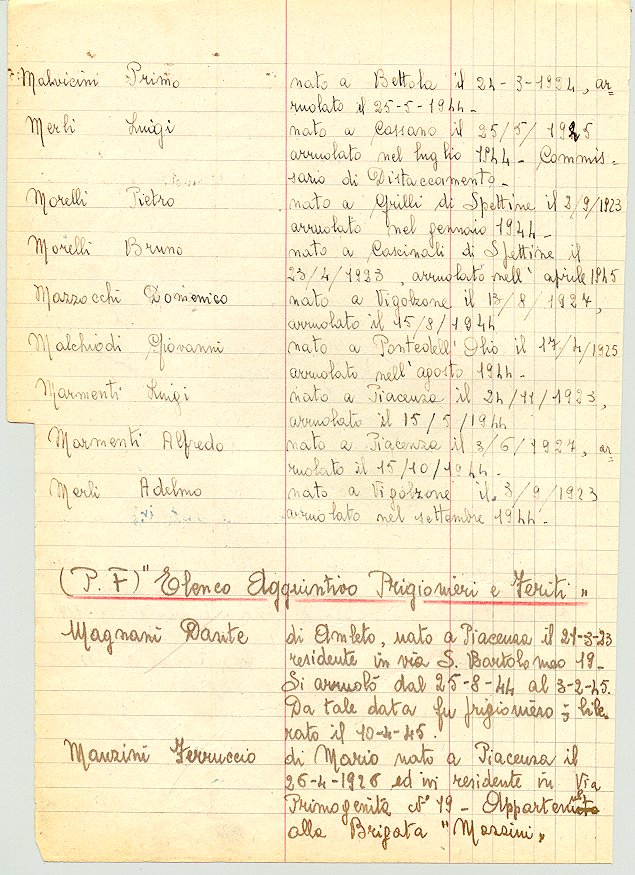 Malvicini Primo nato a Bettola il 24-3-1924, ar=
ruolato il 25-5-1944-
Merli Luigi nato a Cassano il 25/5/1925
arruolato nel luglio 1944- Commis=
sario di Distaccamento-
Morelli Pietro nato a Grilli di Spettine il 2/9/1923
arruolato nel gennaio 1944-
Morelli Bruno nato a Cascinali di Spettine il
23/4/1923, arruolato nell' aprile 1945
Mazzocchi Domenico nato a Vigolzone il 13/8/1927,
arruolato il 15/8/1944
Malchiodi Giovanni nato a Pontedell'Olio il 17/4/1925
arruolato nell'agosto 1944-
Marmenti Luigi nato a Piacenza il 24/11/1923,
arruolato il 15/5/1944
Marmenti Alfredo nato a Piacenza il 3/6/1927, ar=
ruolato il 15/10/1944-
Merli Adelmo nato a Vigolzone il 3/9/1923
arruolato nel settembre 1944-
(P.F) "Elenco Aggiuntivo Prigionieri e Feriti"
Magnani Dante di Amleto, nato a Piacenza il 21-3-23
residente in via S. Bartolomeo 19-
Si arruolò dal 25-8-44 al 3-2-45.
Da tale data fu prigioniero = libe
rato il 10-4-45.
Manzini Ferruccio di Mario nato a Piacenza il
26-4-1926 ed ivi residente in Via
Primogenita N° 19- 
alla Brigata "Mazzini"